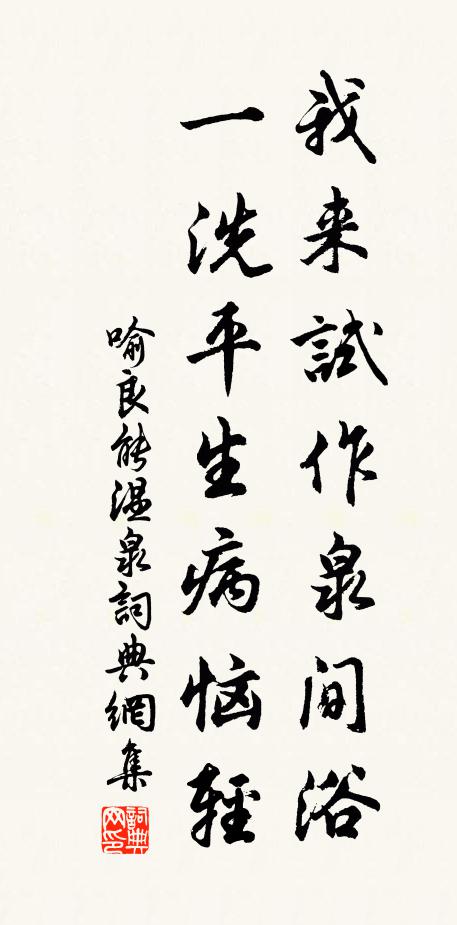 我来試作泉间浴
一洗平生病恼輕
喻良能温泉詞典網集
詞典网印